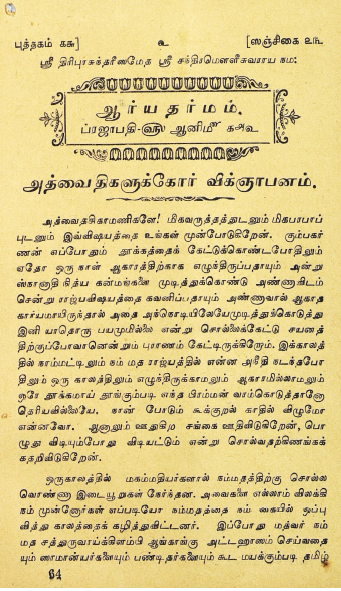 புத்தகம் ௧௬] ௨ [ஸஞ்சிகை ௨௩
ஸ்ரீ திரிபுரசுந்தரீஸமேத ஸ்ரீ சந்திரமௌளீசுவராய நம:
ஆர்யதர்மம்.
ப்ரஜாபதி-௵ ஆனி௴ ௧௮௳
அத்வைதிகளுக்கோர் விக்ஞாபனம்.
அத்வைதசிகாமணிகளே! மிகவருத்தத்துடனும் மிகபரபரப்
புடனும் இவ்விஷயத்தை உங்கள் முன்போடுகிறேன். கும்பகர்
ணன் எப்போதும் தூக்கத்தைக் கேட்டுக்கொண்டபோதிலும்
ஏதோ ஒரு நாள் ஆகாரத்திற்காக எழுந்திருப்பதாயும் அன்று
ஸ்னானாதி நித்ய கன்மங்களை முடித்துக்கொண்டு அண்ணாவிடம்
சென்று ராஜ்யவிஷயத்தை கவனிப்பதாயும் அண்ணாவால் ஆகாத
கார்யமாயிருந்தால் அதை அக்கொடியிலேயேமுடித்துக்கொடுத்து
இனி யாதொரு பயமுமில்லை என்று சொல்லக்கேட்டு சயனத்
திற்குப்போவானென்றும் புராணம் கேட்டிருக்கிறோம். இக்காலத்
தில் நாம்மட்டிலும் நம் மத ராஜ்யத்தில் என்ன அநீதி நடந்தபோ
திலும் ஒரு காலத்திலும் எழுந்திருக்காமலும் ஆகாரமில்லாமலும்
ஒரே தூக்கமாய் தூங்கும்படி எந்த பிரம்மன் வரம்கொடுத்தானோ
தெரியவில்லையே. நான் போடும் கூக்குறல் காதில் விழுமோ
என்னவோ. ஆனாலும் ஊதுகிற சங்கை ஊதிவிடுகிறேன், பொ
ழுது விடியும்போது விடியட்டும் என்று சொல்வதற்கிணங்கக்
கதறிவிடுகிறேன்.
ஒருகாலத்தில் மகம்மதியர்களால் நம்மதத்திற்கு சொல்ல
வொண்ணா இடையூறுகள் நேர்ந்தன. அவைகளை எல்லாம் விலக்கி
நம் முன்னோர்கள் எப்படியோ நம்மதத்தை நம் கையில் ஒப்பு
வித்து காலத்தைக் கழித்துவிட்டனர். இப்போது மத்வர் நம்
மத சத்துருவாய்க்கிளம்பி ஆங்காங்கு அட்டஹாஸம் செய்வதை
யும் ஸாமான்யர்களையும் பண்டிதர்களையும் கூட மயக்கும்படி தமிழ்
64